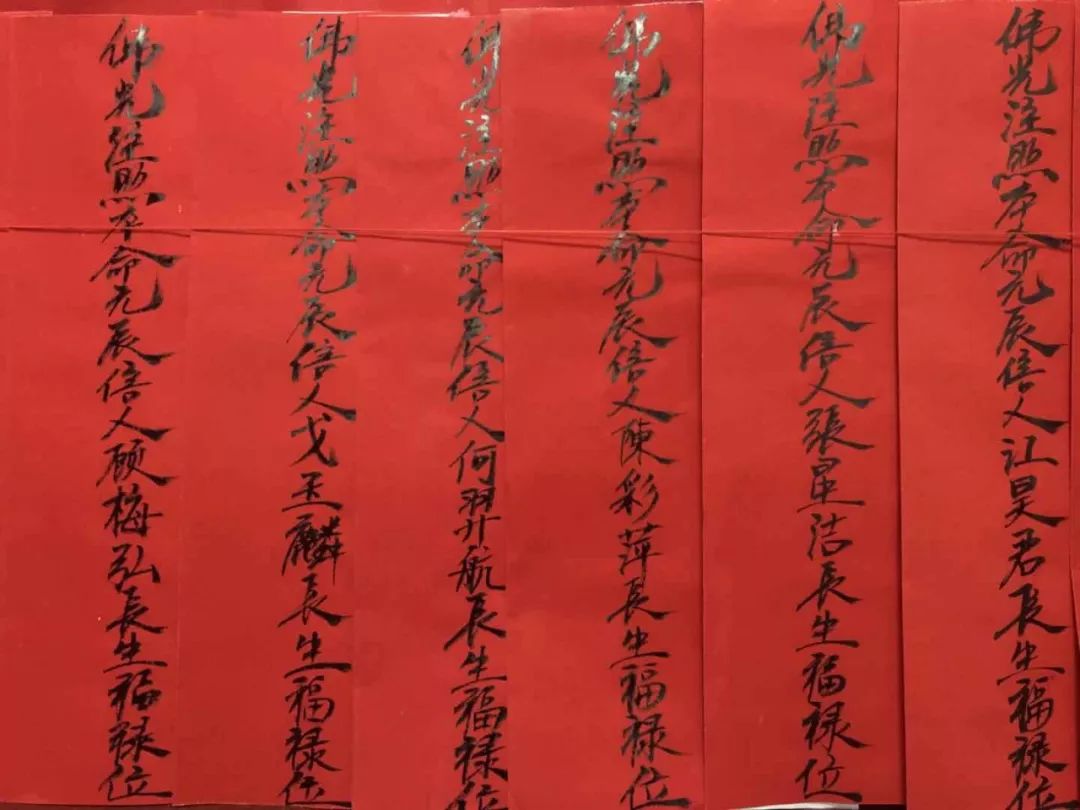 佛光注照本命元辰信人江昊君長生福禄位
佛光注照本命元辰信人張星洁長生福禄位
佛光注照本命元辰信人陳彩萍長生福禄位
佛光注照本命元辰信人何羿航長生福禄位
佛光注照本命元辰信人戈玉麟長生福禄位
佛光注照本命元辰信人顾梅弘長生福禄位